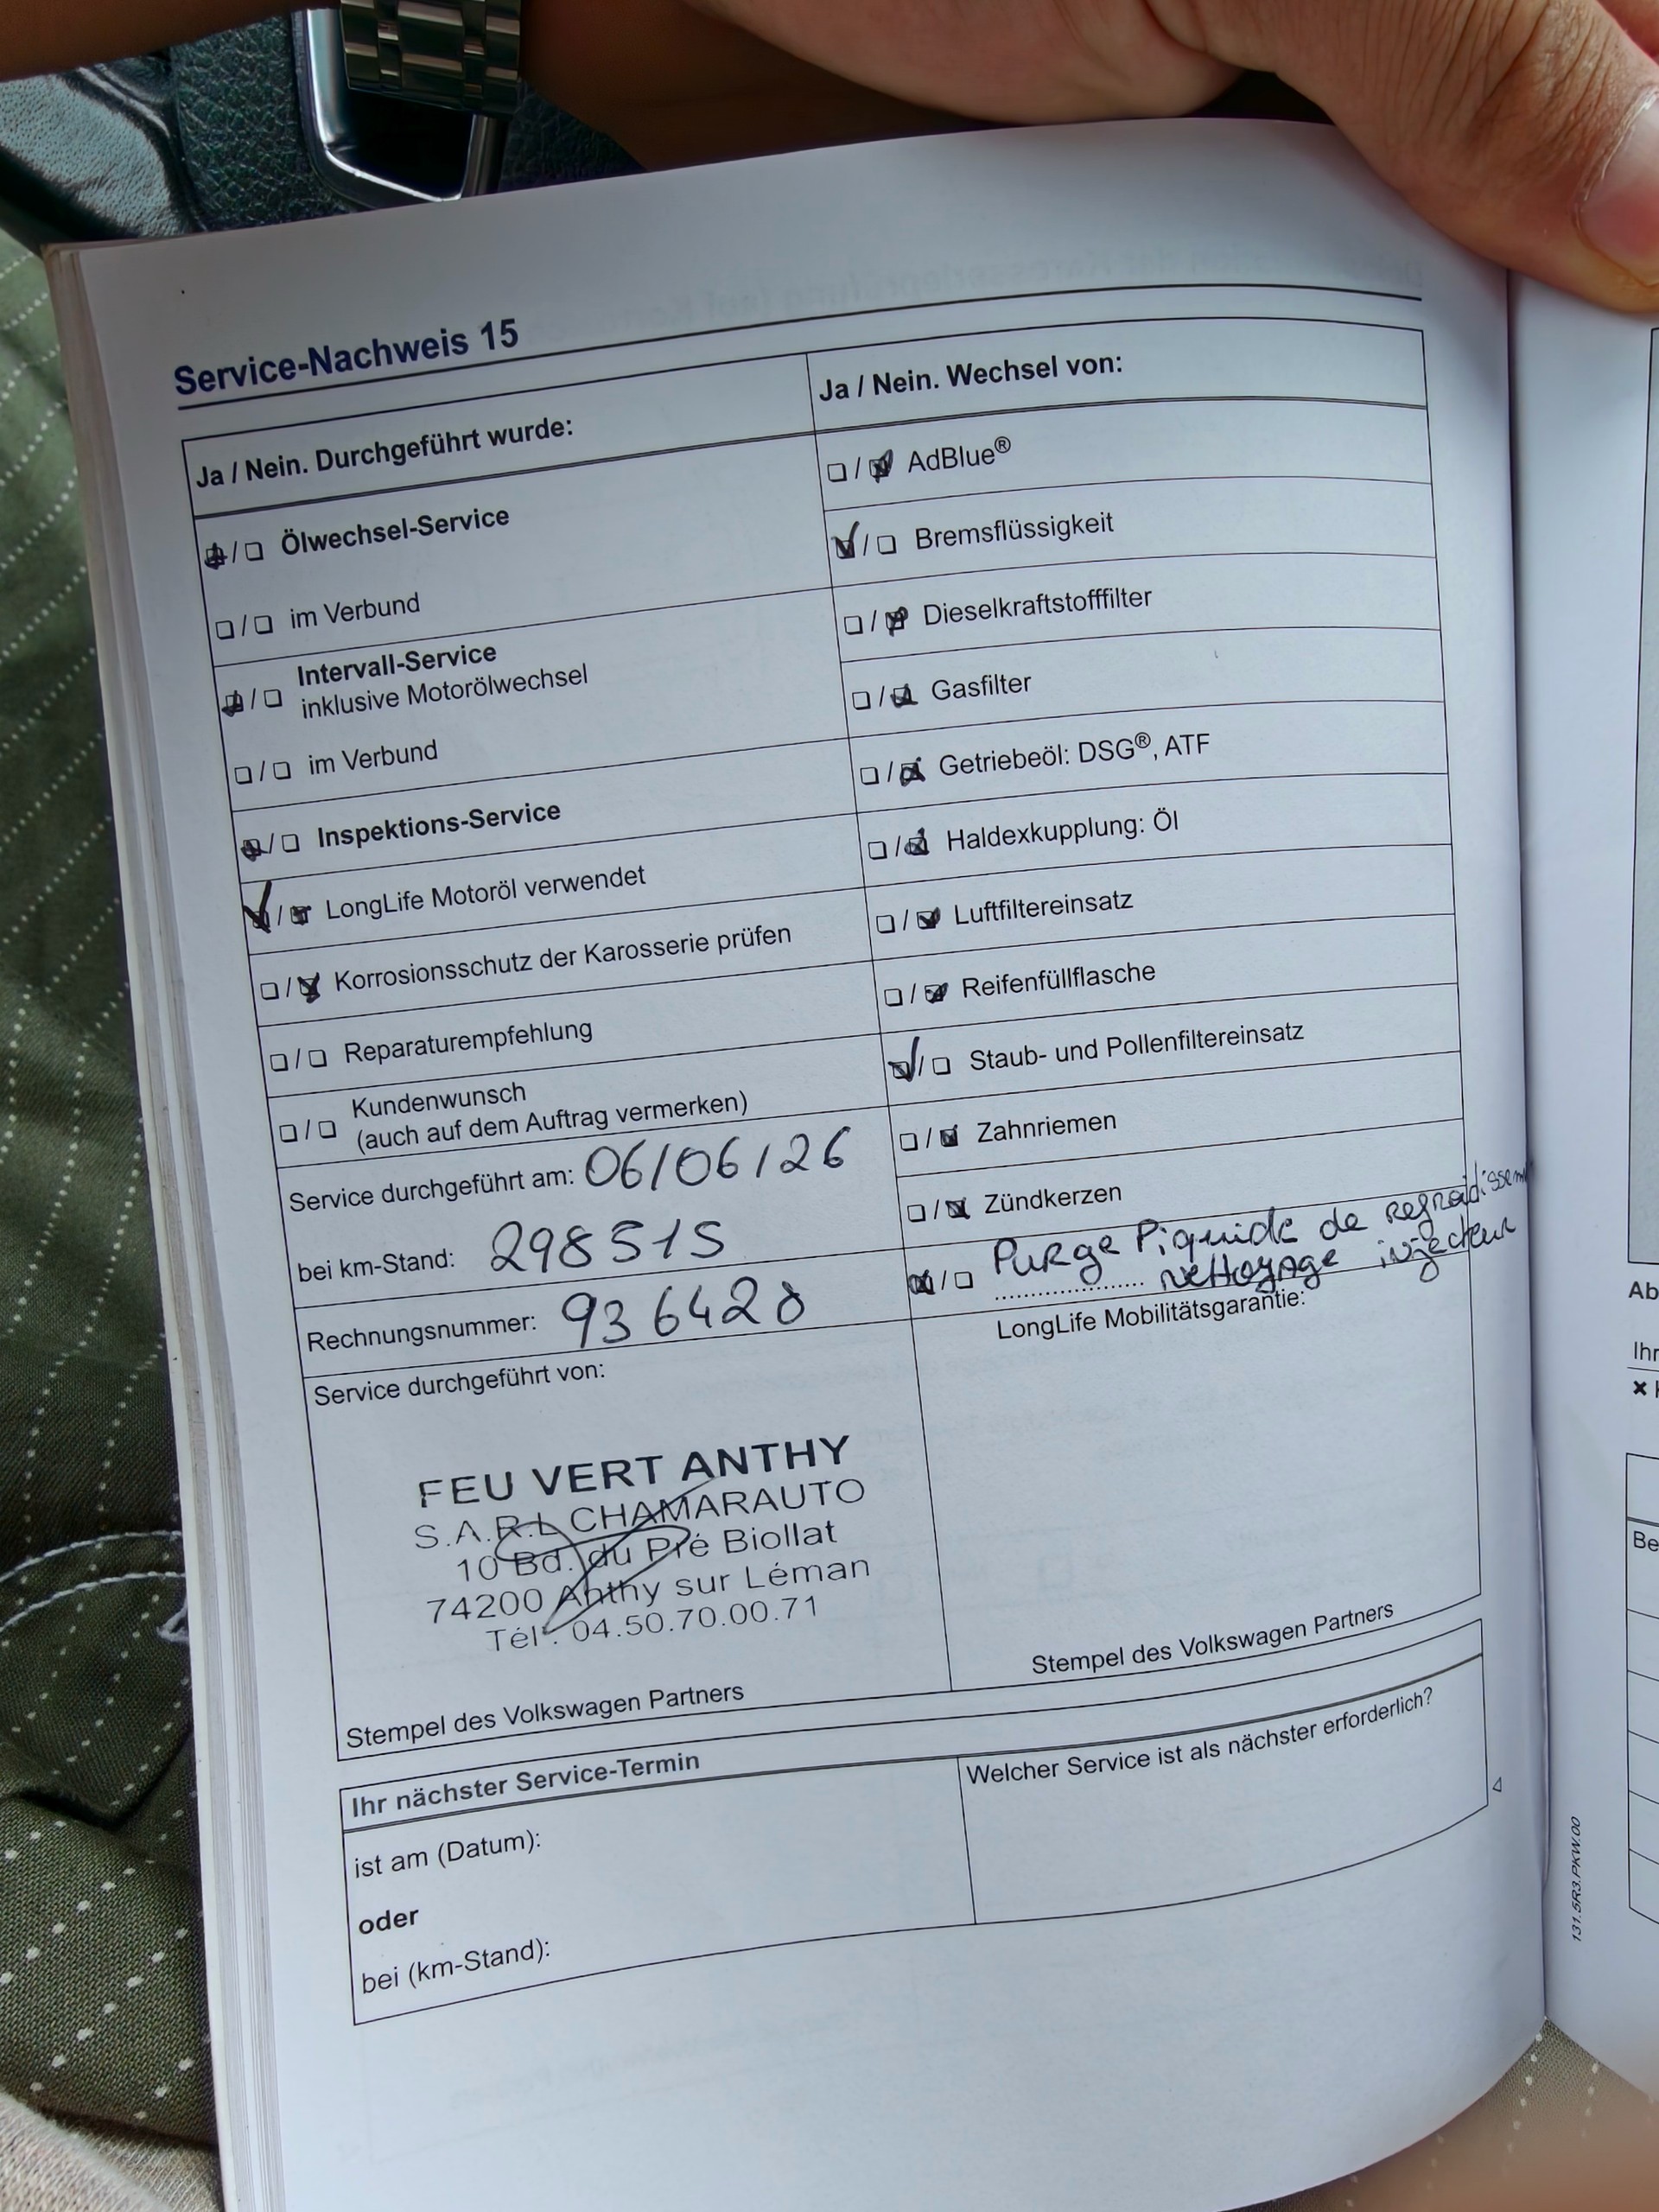 Service-Nachweis 15
Ja / Nein. Durchgeführt wurde:
Ölwechsel-Service
im Verbund
Intervall-Service
inklusive Motorölwechsel
im Verbund
Inspektions-Service
LongLife Motoröl verwendet
Korrosionsschutz der Karosserie prüfen
Reparaturempfehlung
Kundenwunsch
(auch auf dem Auftrag vermerken)
Service durchgeführt am: 06/06/26
bei km-Stand: 298515
Rechnungsnummer: 936428
Service durchgeführt von:
FEU VERT ANTHY
S.A.R.L CHAMARAUTO
10 Bd. du Pré Biollat
74200 Anthy sur Léman
Tél : 04.50.70.00.71
Stempel des Volkswagen Partners
Ja / Nein. Wechsel von:
AdBlue®
Bremsflüssigkeit
Dieselkraftstofffilter
Gasfilter
Getriebeöl: DSG®, ATF
Haldexkupplung: Öl
Luftfiltereinsatz
Reifenfüllflasche
Staub- und Pollenfiltereinsatz
Zahnriemen
Zündkerzen
Purge liquide de refroidissem
nettoyage injecteur
LongLife Mobilitätsgarantie:
Stempel des Volkswagen Partners
Ihr nächster Service-Termin
ist am (Datum):
oder
bei (km-Stand):
Welcher Service ist als nächster erforderlich?
131.5R3.PKW.00
Ab
Ihr
Be